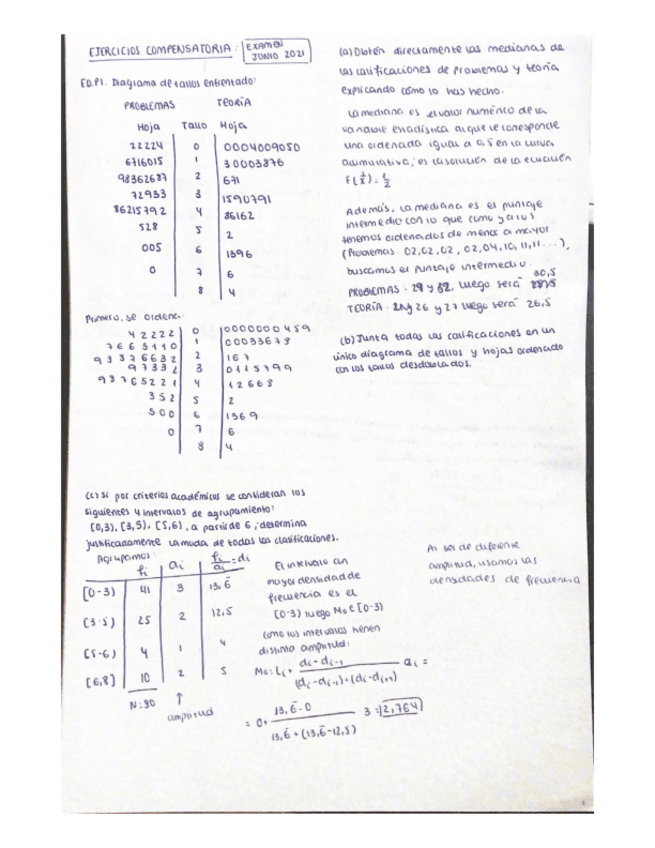 EJERCICIOS COMPENSATORIA: EXAMEN
JUNIO 2021
ED.P1. Diagrama de tallos enfrentado:
PROBLEMAS TEORÍA
Hoja Tallo Hoja
22224 0 0004009050
6716015 1 30003876
98362637 2 671
72933 3 1590791
86215792 4 86162
528 5 2
005 6 1396
0 7 6
8 4
Primero, se ordena:
42222 0 0000000459
7665110 1 00033678
93376632 2 167
97332 3 0115799
97765221 4 12668
352 5 2
500 6 1369
0 7 6
8 4
(a) Obtén directamente las medianas de
las calificaciones de problemas y teoría
explicando cómo lo has hecho.
La mediana es el valor numérico de la
variable estadística al que le corresponde
una ordenada igual a 0,5 en la curva
acumulativa; es la solución de la ecuación
F(x)=1/2
Además, la mediana es el puntaje
intermedio con lo que como ya los
tenemos ordenados de menor a mayor
(Problemas: 02,02,02,02,04,10,11,11...),
buscamos el puntaje intermedio.
PROBLEMAS: 29 y 32, luego será 30,5
TEORÍA: 26 y 27 luego será 26,5
(b) Junta todas las calificaciones en un
único diagrama de tallos y hojas ordenado
con los tallos desdoblados.
(c) Si por criterios académicos se consideran los
siguientes 4 intervalos de agrupamiento:
[0,3), [3,5), [5,6), a partir de 6, determina
justificadamente la moda de todas las clasificaciones.
Agrupamos:
fi ai fi/ai = di
[0-3) 41 3 13,6
[3-5) 25 2 12,5
[5-6) 4 1 4
[6,8] 10 2 5
N=80 ↑
amplitud
El intervalo con
mayor densidad de
frecuencia es el
[0-3) luego Mo ∈ [0-3)
como los intervalos tienen
distinta amplitud:
Mo = Li + (di - di-1) / ((di - di-1) + (di - di+1)) ai =
= 0 + (13,6 - 0) / (13,6 + (13,6 - 12,5)) 3 = 2,764
Al ser de diferente
amplitud, usamos las
densidades de frecuencia